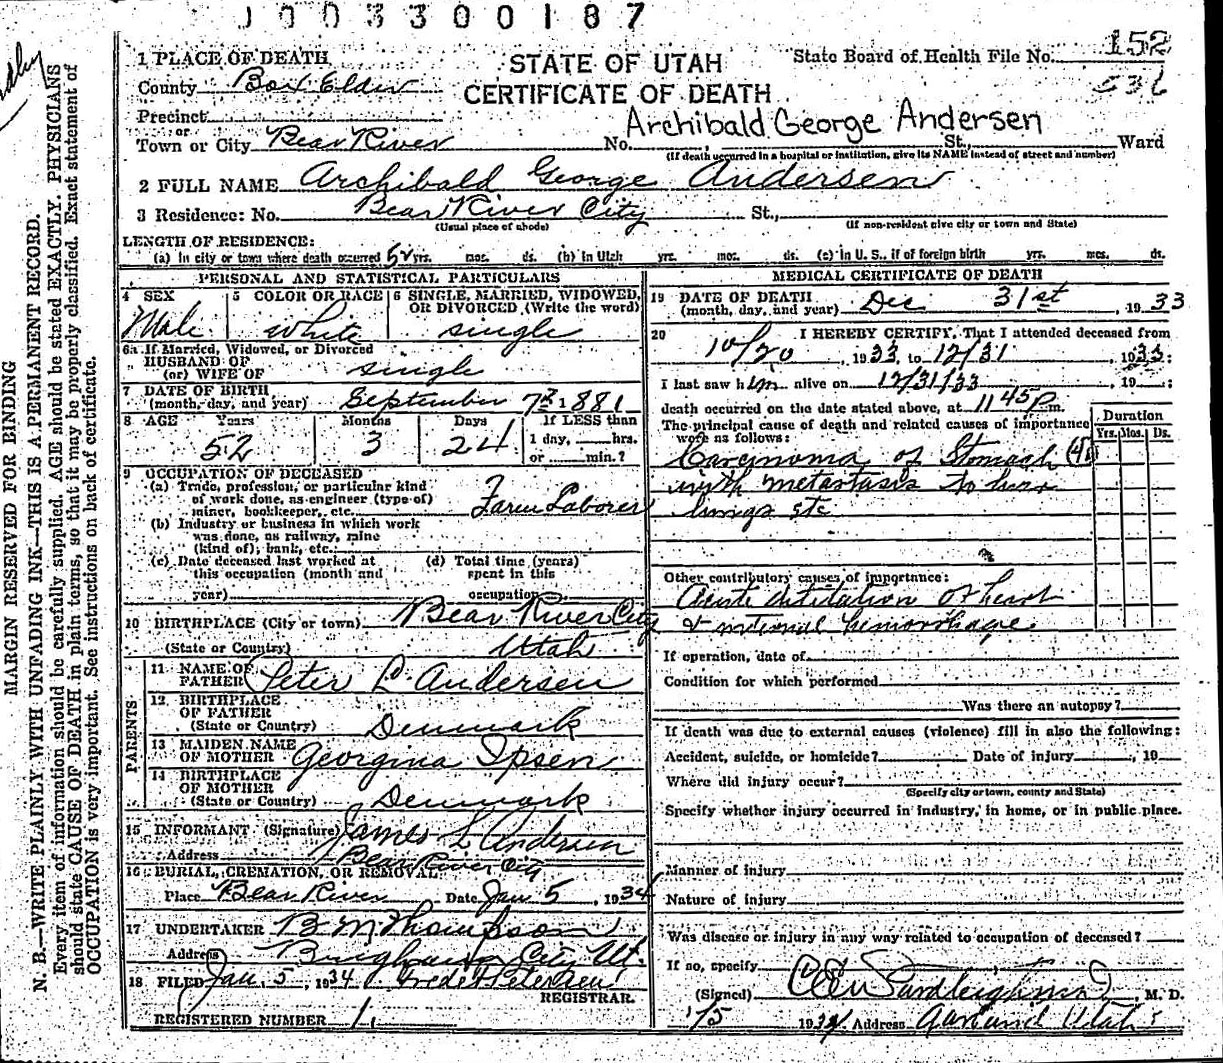 J003300187
1 PLACE OF DEATH
STATE OF UTAH
State Board of Health File No. 152
County Box Elder
CERTIFICATE OF DEATH
536
Precinct
or
Archibald George Andersen
Town or City Bear River No. St., Ward
(If death occurred in a hospital or institution, give its NAME instead of street and number)
2 FULL NAME Archibald George Andersen
3 Residence: No. Bear River City St.,
(Usual place of abode) (If non-resident give city or town and State)
LENGTH OF RESIDENCE:
(a) In city or town where death occurred 52 yrs. mos. ds. (b) In Utah yrs. mos. ds. (c) in U. S., if of foreign birth yrs. mos. ds.
PERSONAL AND STATISTICAL PARTICULARS
4 SEX
Male
5 COLOR OR RACE
White
6 SINGLE, MARRIED, WIDOWED,
OR DIVORCED (Write the word)
single
6a If Married, Widowed, or Divorced
HUSBAND OF
(or) WIFE OF single
7 DATE OF BIRTH
(month, day, and year) September 7 1881
8 AGE Years Months Days If LESS than
52 3 24 1 day, hrs.
or min.?
9 OCCUPATION OF DECEASED
(a) Trade, profession, or particular kind
of work done, as engineer (type of)
miner, bookkeeper, etc. Farm Laborer
(b) Industry or business in which work
was done, as railway, mine
(kind of), bank, etc.
(c) Date deceased last worked at
this occupation (month and
year)
(d) Total time (years)
spent in this
occupation
10 BIRTHPLACE (City or town) Bear River City
(State or Country) Utah
PARENTS
11 NAME OF
FATHER Peter L Andersen
12 BIRTHPLACE
OF FATHER
(State or Country) Denmark
13 MAIDEN NAME
OF MOTHER Georgina Ipsen
14 BIRTHPLACE
OF MOTHER
(State or Country) Denmark
15 INFORMANT (Signature) James L Andersen
Address Bear River City
16 BURIAL, CREMATION, OR REMOVAL
Place Bear River Date Jan 5, 1934
17 UNDERTAKER B M Thompson
Address Brigham City Ut.
18 FILED Jan. 5, 1934 Fred Petersen
REGISTRAR.
REGISTERED NUMBER 1.
MEDICAL CERTIFICATE OF DEATH
19 DATE OF DEATH
(month, day, and year) Dec 31st, 1933
20 I HEREBY CERTIFY, That I attended deceased from
10/20 1933, to 12/31 1933;
I last saw him alive on 12/31/33, 19 ;
death occurred on the date stated above, at 11 45 P m.
The principal cause of death and related causes of importance
were as follows:
Duration
Yrs. Mos. Ds.
Carcinoma of Stomach
with metastasis to liver
lungs etc
Other contributory causes of importance:
Acute dilitation of heart
& internal hemorrhage.
If operation, date of
Condition for which performed
Was there an autopsy?
If death was due to external causes (violence) fill in also the following:
Accident, suicide, or homicide? Date of injury , 19
Where did injury occur?
(Specify city or town, county and State)
Specify whether injury occurred in industry, in home, or in public place.
Manner of injury
Nature of injury
Was disease or injury in any way related to occupation of deceased?
If so, specify
(Signed) M. D.
1/5 1934 Address Garland Utah
MARGIN RESERVED FOR BINDING
N. B.—WRITE PLAINLY WITH UNFADING INK—THIS IS A PERMANENT RECORD.
Every item of information should be carefully supplied. AGE should be stated EXACTLY. PHYSICIANS
should state CAUSE OF DEATH in plain terms, so that it may be properly classified. Exact statement of
OCCUPATION is very important. See instructions on back of certificate.